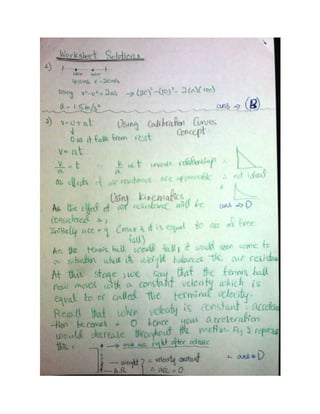 Worksheet Solutions
1)
using v²-u²=2as → (20)²-(10)²= 2(a)(100)
a = 1.5m/s² ans → (B)
2) v=u+at Using calibration Curves
Concept
0 as it falls from rest
v= at
v/a = t ∴ inverse relationship ∴
as effects of air resistance are appreciable ∴ not ideal
Using kinematics
As the effect of air resistance will be ans → D
considered ∴,
Initially acc = g (max & it is equal to acc of free
fall)
As the tennis ball would fall, it would soon come to
a situation when its weight balances the air resistance
At this stage, we say that the tennis ball
now moves with a constant velocity which is
equal to or called the terminal velocity.
Recall that when velocity is constant, accelera
-tion becomes = 0 hence your acceleration
would decrease throughout the motion. Fig D represents
this: → right after release
weight ∴ velocity constant ∴ ans → D
A.R. ∴ acc = 0